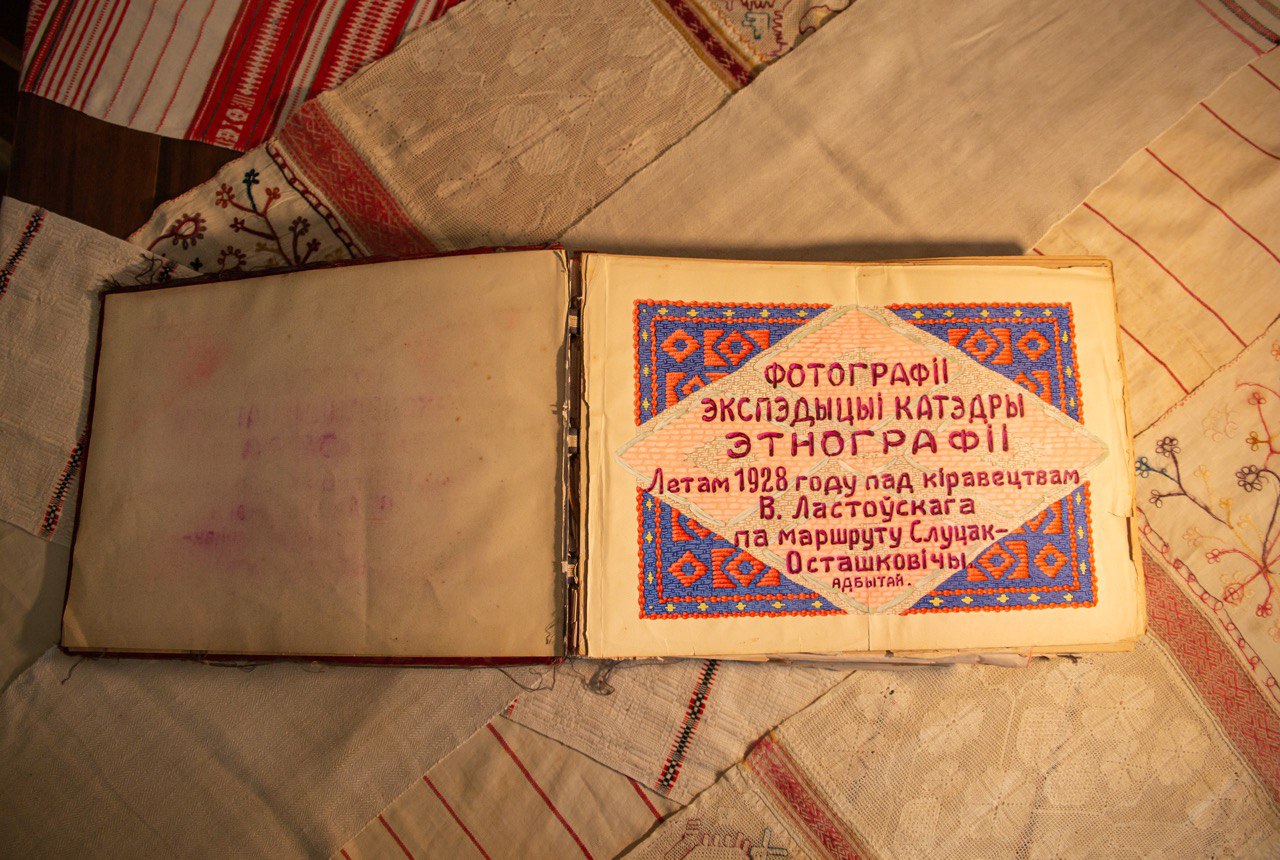 ФОТОГРАФІІ
ЭКСПЭДЫЦЫІ КАТЭДРЫ
ЭТНОГРАФІІ
Летам 1928 году пад кіравецтвам
В. Ластоўскага
па маршруту Слуцак–
Осташковічы.
АДБЫТАЙ.